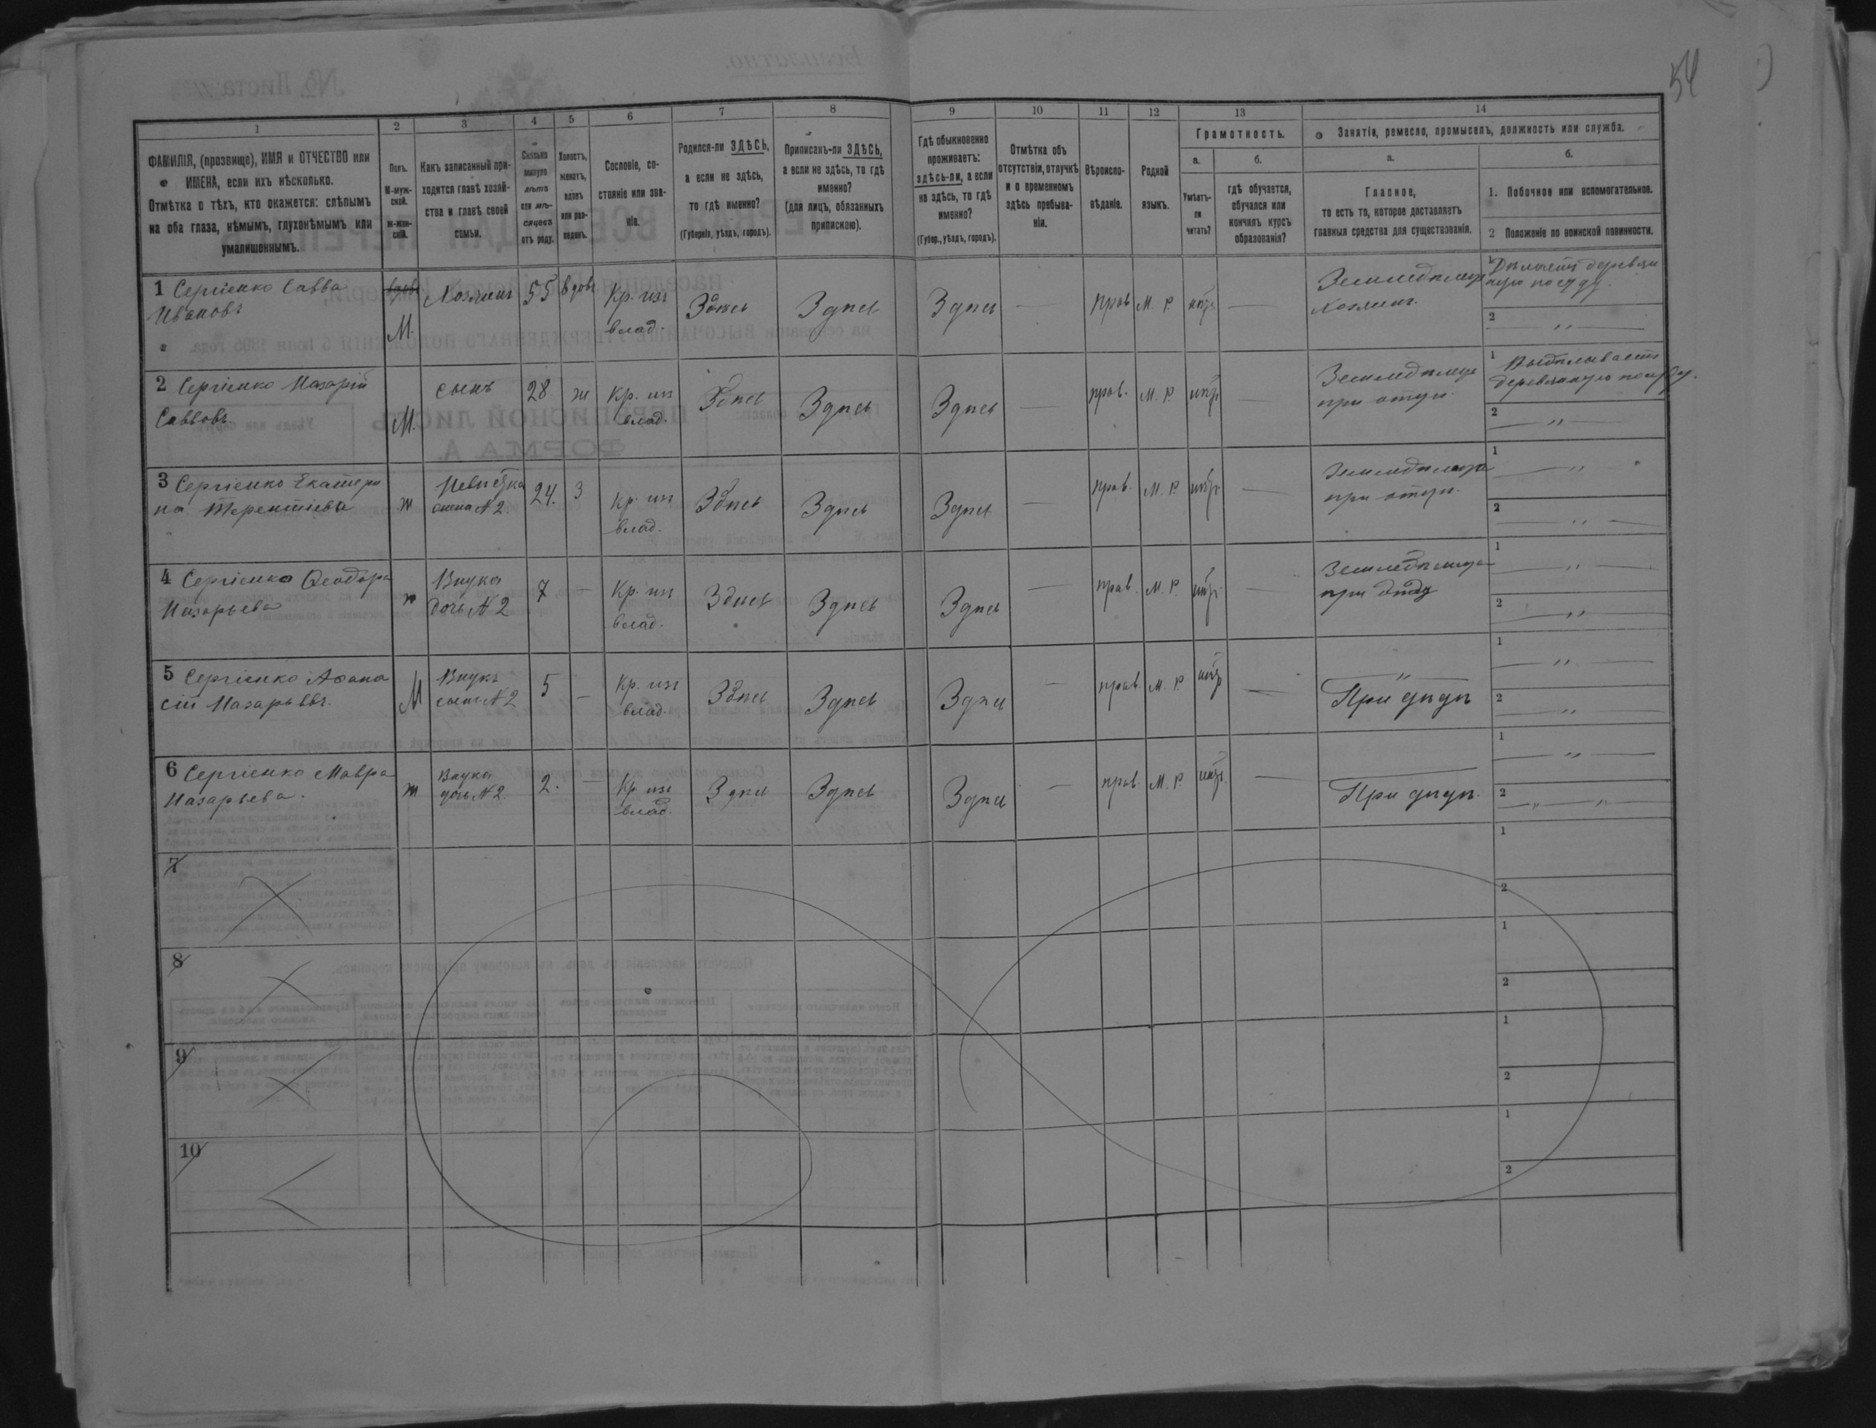 54
1
2
3
4
5
6
7
8
9
10
11
12
13
14
ФАМИЛІЯ, (прозвище), ИМЯ и ОТЧЕСТВО или
ИМЕНА, если ихъ нѣсколько.
Отмѣтка о тѣхъ, кто окажется: слѣпымъ
на оба глаза, нѣмымъ, глухонѣмымъ или
умалишеннымъ.
Полъ.
М-муж-
ской.
Ж-жен-
скій.
Какъ записанный при-
ходится главѣ хозяй-
ства и главѣ своей
семьи.
Сколько
минуло
лѣтъ
или мѣ-
сяцевъ
отъ роду.
Холостъ,
женатъ,
вдовъ
или раз-
веденъ.
Сословіе, со-
стояніе или зва-
ніе.
Родился-ли ЗДѢСЬ,
а если не здѣсь,
то гдѣ именно?
(Губернія, уѣздъ, городъ).
Приписанъ-ли ЗДѢСЬ,
а если не здѣсь, то гдѣ
именно?
(для лицъ, обязанныхъ
припискою).
Гдѣ обыкновенно
проживаетъ:
здѣсь-ли, а если
не здѣсь, то гдѣ
именно?
(Губер., уѣздъ, городъ).
Отмѣтка объ
отсутствіи, отлучкѣ
и о временномъ
здѣсь пребыва-
ніи.
Вѣроиспо-
вѣданіе.
Родной
языкъ.
Грамотность.
а.
Умѣетъ-
ли
читать?
б.
гдѣ обучается,
обучался или
кончилъ курсъ
образованія?
Занятіе, ремесло, промыселъ, должность или служба.
а.
Главное,
то есть то, которое доставляетъ
главныя средства для существованія.
б.
1. Побочное или вспомогательное.
2 Положеніе по воинской повинности.
1 Сергіенко Савва
Ивановъ
М.
Хозяинъ
55
вдов
Кр. изъ
влад.
Здѣсь
Здѣсь
Здѣсь
—
прав
М. Р.
—
Земледѣлецъ
хозяинъ.
1
2 — " —
2 Сергіенко Назарій
Саввовъ
М.
сынъ
28
ж
Кр. изъ
влад.
Здѣсь
Здѣсь
Здѣсь
—
прав.
М. Р.
—
Земледѣлецъ
при отцѣ.
1 Выдѣлываетъ
деревянную посуду.
2 — " —
3 Сергіенко Екатери
на Терентіева
ж
Невѣстка
жена № 2
24.
З
Кр. изъ
влад.
Здѣсь
Здѣсь
Здѣсь
—
прав.
М. Р.
—
при отцѣ.
1 — " —
2 — " —
4 Сергіенко Ѳеодора
Назарьева
ж
Внука
дочь № 2
7
—
Кр. изъ
влад.
Здѣсь
Здѣсь
Здѣсь
—
прав.
М. Р.
—
при дѣду
1 — " —
2 — " —
5 Сергіенко Аѳана
сій Назарьевъ.
М
Внукъ
сынъ № 2
5
—
Кр. изъ
влад.
Здѣсь
Здѣсь
Здѣсь
—
прав.
М. Р.
—
"
При дѣдѣ
1 — " —
2 — " —
6 Сергіенко Мавра
Назарьева.
ж
Внука
дочь № 2
2.
—
Кр. изъ
влад.
Здѣсь
Здѣсь
Здѣсь
—
прав.
М. Р.
—
При дѣдѣ.
1 — " —
2 — " — " —
7
1
2
8
1
2
9
1
2
10
1
2